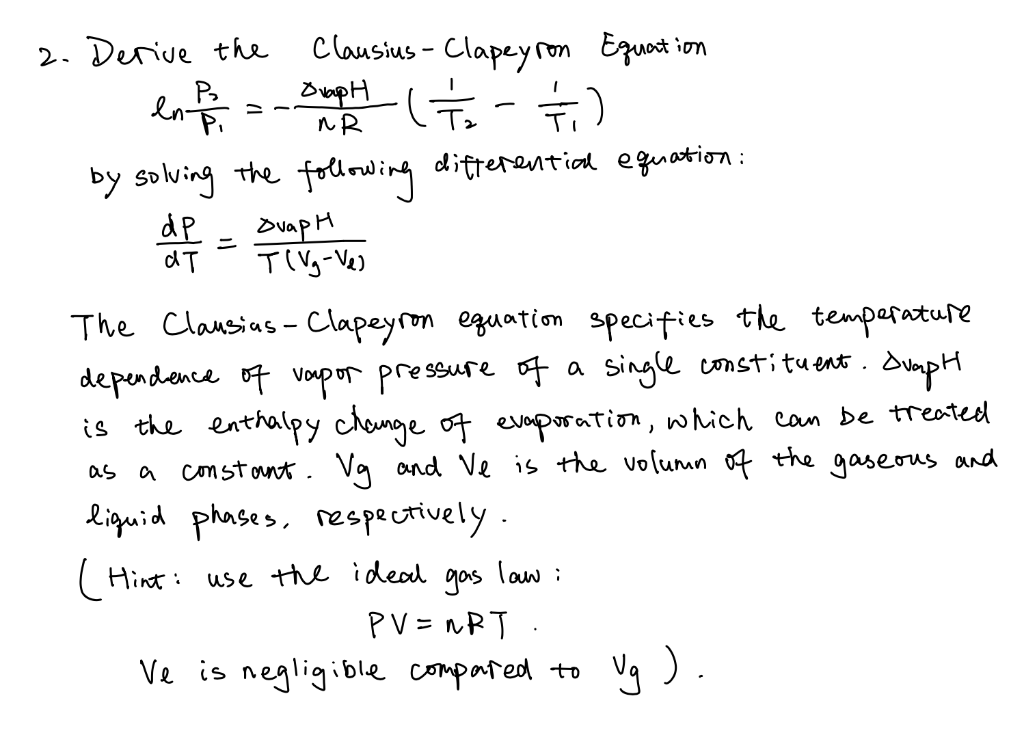 2. Derive the Clausius-Clapeyron Equation
ln P₂/P₁ = - ΔvapH/nR (1/T₂ - 1/T₁)
by solving the following differential equation:
dP/dT = ΔvapH/T(Vg-Vl)
The Clausius-Clapeyron equation specifies the temperature
dependence of vapor pressure of a single constituent. ΔvapH
is the enthalpy change of evaporation, which can be treated
as a constant. Vg and Vl is the volumn of the gaseous and
liquid phases, respectively.
(Hint: use the ideal gas law:
PV = nRT.
Vl is negligible compared to Vg).